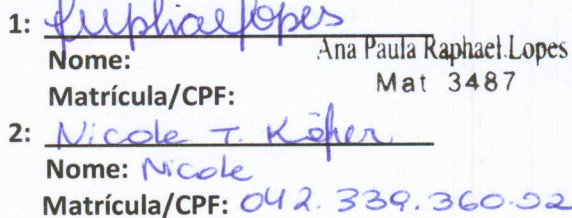 1: Lopes
Nome: Ana Paula Raphael Lopes
Matrícula/CPF: Mat 3487
2: Nicole T. Köfer
Nome: Nicole
Matrícula/CPF: 042.339.360.02